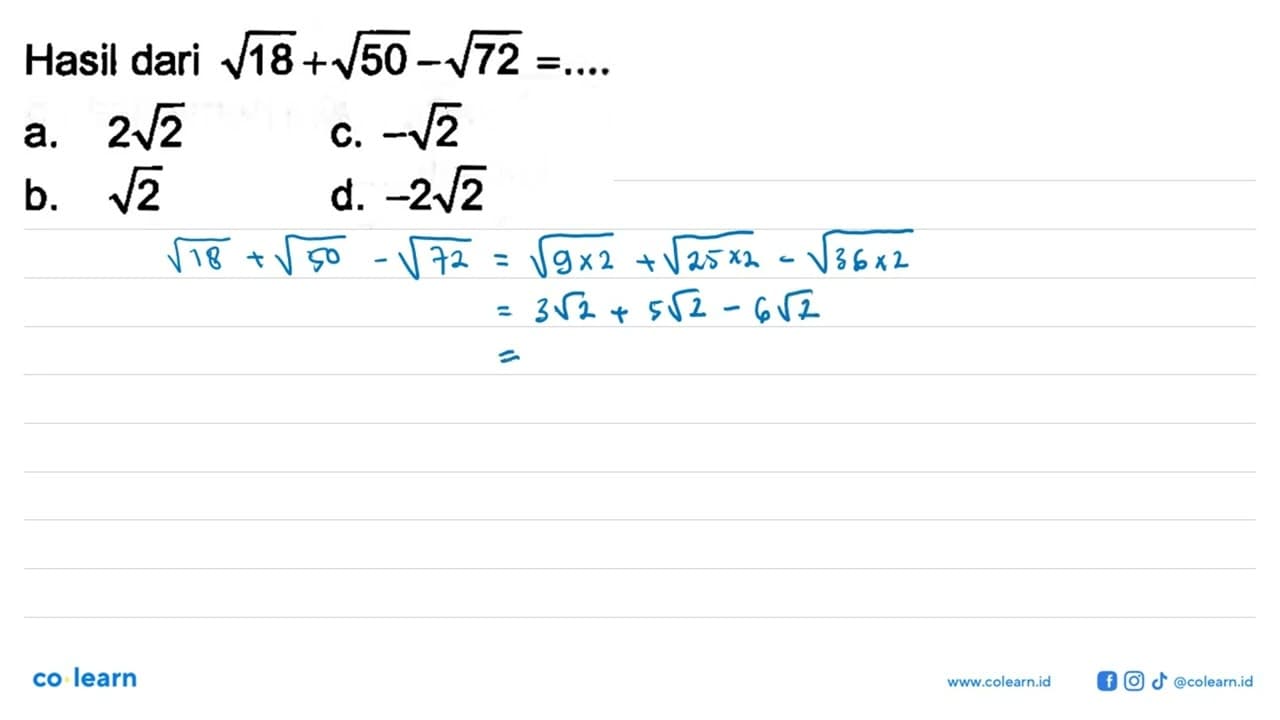 Hasil dari √18 + √50 – √72 = ....
a. 2√2 c. –√2
b. √2 d. –2√2
√18 + √50 - √72 = √9×2 + √25×2 - √36×2
= 3√2 + 5√2 - 6√2
=
co learn
www.colearn.id @colearn.id